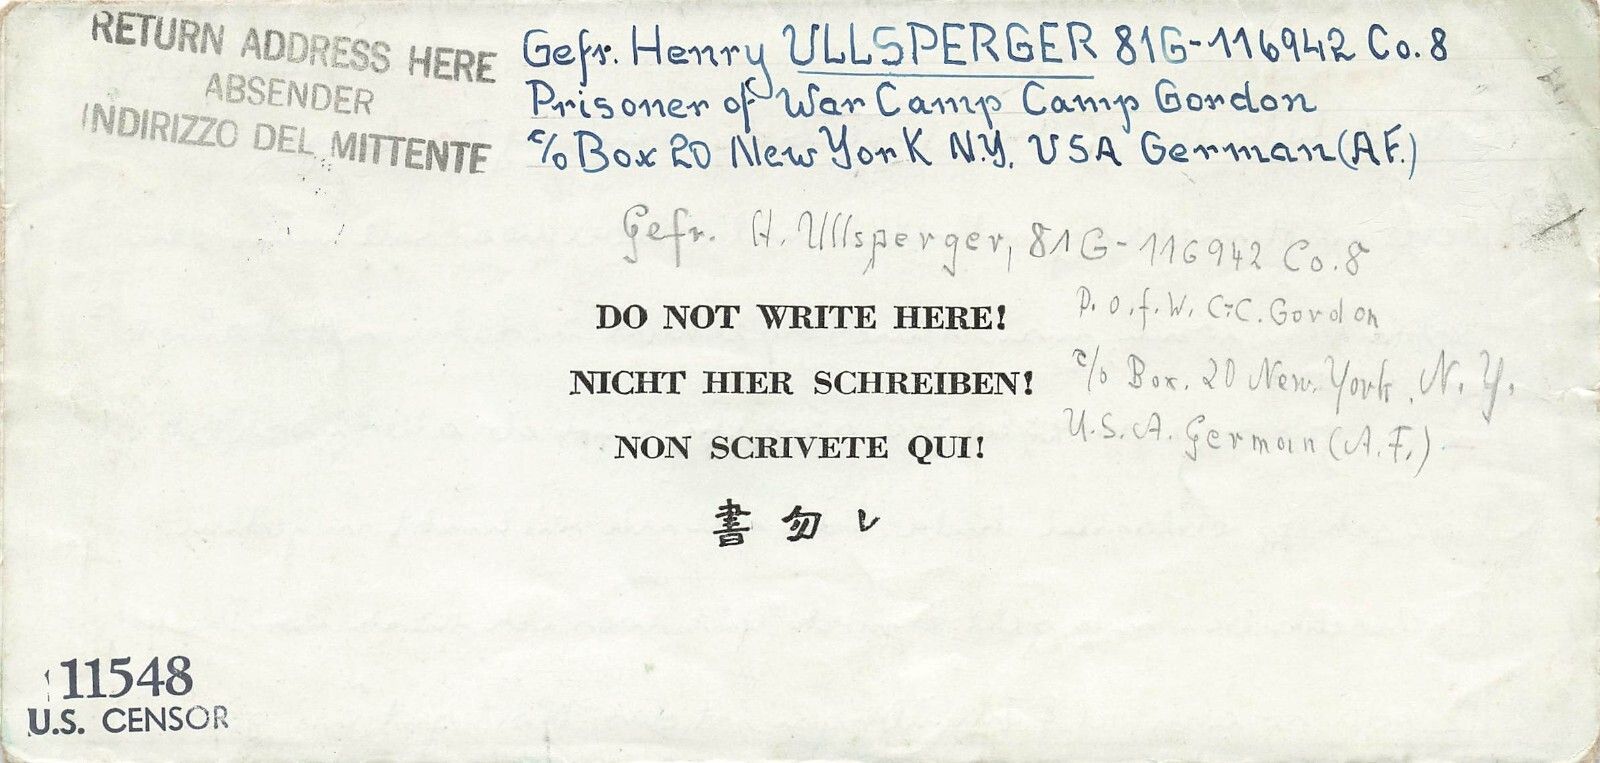 RETURN ADDRESS HERE
ABSENDER
INDIRIZZO DEL MITTENTE
Gefr. Henry ULLSPERGER 81G-116942 Co. 8
Prisoner of War Camp Camp Gordon
c/o Box 20 New York N.Y. USA German (A F.)
Gefr. H. Ullsperger, 81G-116942 Co. 8
P. o. f. W. C. C. Gordon
c/o Box. 20 New York. N. Y.
U.S.A. German (A.F.)
DO NOT WRITE HERE!
NICHT HIER SCHREIBEN!
NON SCRIVETE QUI!
書勿レ
11548
U.S. CENSOR